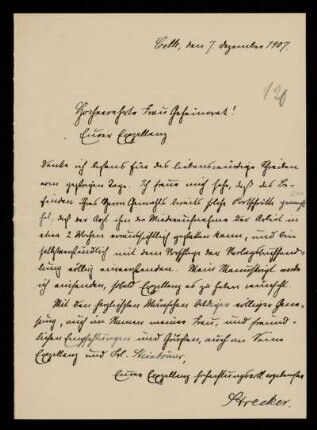 Celle, den 7. Dezember 1907.
120
Hochverehrte Frau Geheimrat!
Eurer Exzellenz
danke ich bestens für das liebenswürdige Schreiben
vom gestrigen Tage. Ich freue mich sehr, daß das Be-
finden Ihres Herrn Gemahls bereits solche Fortschritte gemacht
hat, daß der Arzt ihm die Wiederaufnahme der Arbeit in
etwa 2 Wochen voraussichtlich gestatten kann, und bin
selbstverständlich mit dem Vorschlage der Verlagsbuchhand-
lung völlig einverstanden. Mein Manuskript werde
ich einsenden, sobald Exzellenz es zu haben wünscht.
Mit den herzlichsten Wünschen baldiger völliger Gene-
sung, auch im Namen meiner Frau, und freund-
lichen Empfehlungen und Grüßen, auch an Seine
Exzellenz und Frl.
Eurer Exzellenz ergebenster
Strecker.